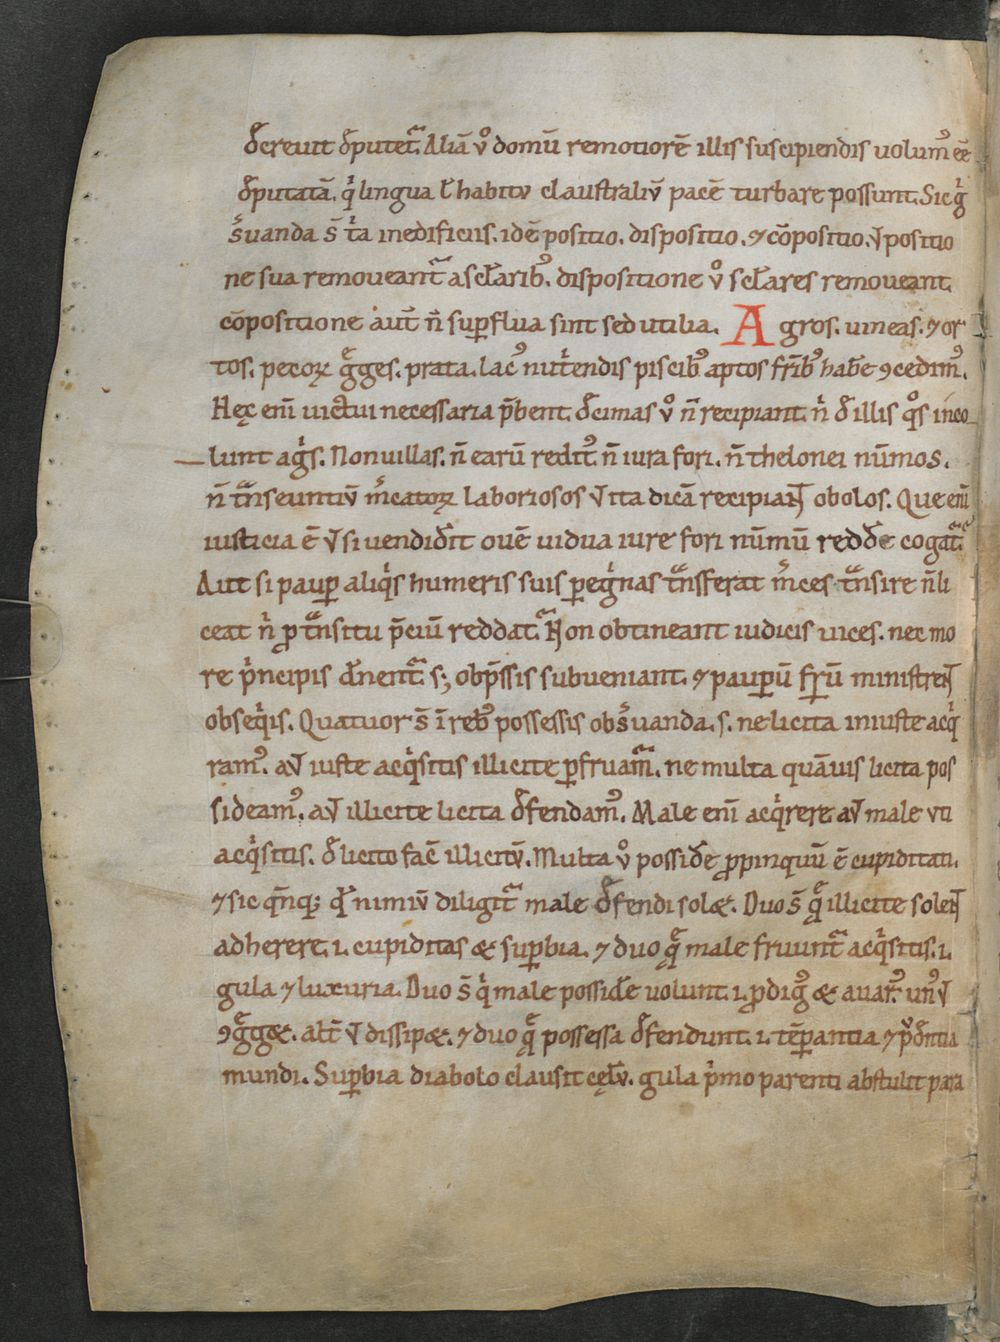 decreuit deputet᷑. Aliā v̊ domū remotiorē illis suscipiendis uolumꝰ eē
deputatā. qͥ lingua ł habitv claustraliv̄ pacē turbare possunt. Sicqͥ
s̉uanda s̄ t̉a inedificiis. idē positio. dispositio. ⁊ cōpositio. ỽ positio
ne sua remoueant᷑ a scłaribꝰ. dispositione v̊ scłares remoueant.
cōpositione aut̄ n̄ suꝑflua sint sed utilia. Agros. uineas. ⁊ or
tos. pecoꝝ g̉ges. prata. lacꝰ nut̉endis piscibꝰ aptos fr̄ibꝰ habe ꝯcedimꝰ.
Hęc enī uictui necessaria p̄bent. decimas v̊ n̄ recipiant. nͥ de illis qͦs inco
lunt agͦs. Non uillas. n̄ earū redit᷒. n̄ iura fori. n̄ thelonei nūmos.
n̄ tᷓnseuntiv̄ m̉catoꝝ laboriosos ỽ ita dicā recipiant obolos. Que enī
iusticia ē ỽ si uendiderit ouē uidua iure fori nūmū reddere cogat᷑.
Aut si pauꝑ aliqͥs humeris suis ꝑegͥnas tᷓnsferat m̉ces tᷓnsire n̄ li
ceat nͥ ꝓ tᷓnsitu p̄ciū reddat᷑. Non obtineant iudicis uices. nec mo
re pͥncipis dn̄ent᷑ s; obp̄ssis subueniant. ⁊ pauꝑū fr̄um ministrent
obseqͥis. Quatuor s̄ ī rebꝰ possessis obs̉uanda. s. ne licita iniuste acqͥ
ramꝰ. aỽ iuste acqͥsitis illicite ꝑfruam᷑. ne multa quāuis licita pos
sideamꝰ. aỽ illicite licita defendamꝰ. Male enī acqͥrere aỽ male vti
acqͥsitis. de licito facē illicitv̄. Multa v̊ posside ꝓpinquū ē cupiditati.
⁊ sic q̄nq; qd̄ nimiv̄ diligit᷑ male defendi solæ. Duo s̄ quę illicite solent
adherere. ı. cupiditas & suꝑbia. ⁊ duo quę male fruunt᷑ acqͥsitis. ı.
gula ⁊ luxuria. Duo s̄ qͥ male posside uolunt. ı. ꝓdigꝰ & auarꝰ. unꝰ ỽ
ꝯg̉gæ. alt̄ ỽ dissipæ. ⁊ duo quę possessa defendunt. ı. tēꝑantia ⁊ pͬdentia
mundi. Suꝑbia diabolo clausit cęlv̄. gula pͥmo parenti abstulit para